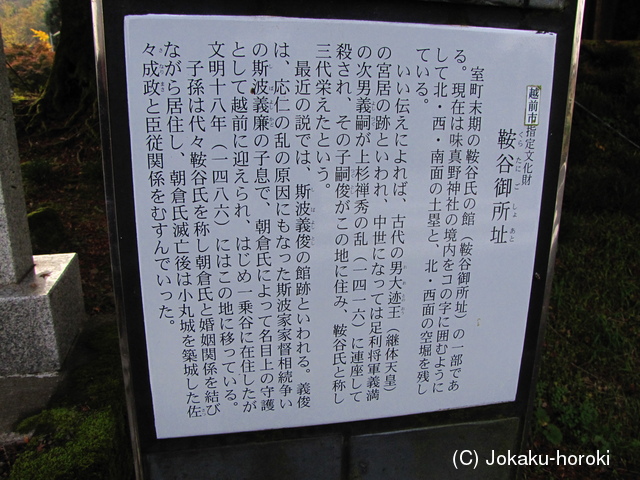 越前市指定文化財
鞍谷御所址
くらたにごしょあと
室町末期の鞍谷氏の館（鞍谷御所址）の一部であ
る。現在は味真野神社の境内をコの字に囲むように
して北・西・南面の土塁と、北・西面の空堀を残し
ている。
いい伝えによれば、古代の男大迹王（継体天皇）
の宮居の跡といわれ、中世になっては足利将軍義満
の次男義嗣が上杉禅秀の乱（一四一六）に連座して
殺され、その子嗣俊がこの地に住み、鞍谷氏と称し
三代栄えたという。
最近の説では、斯波義俊の館跡といわれる。義俊
は、応仁の乱の原因にもなった斯波家家督相続争い
の斯波義廉の子息で、朝倉氏によって名目上の守護
として越前に迎えられ、はじめ一乗谷に在住したが
文明十八年（一四八六）にはこの地に移っている。
子孫は代々鞍谷氏を称し朝倉氏と婚姻関係を結び
ながら居住し、朝倉氏滅亡後は小丸城を築城した佐
々成政と臣従関係をむすんでいった。
(C) Jokaku-horoki